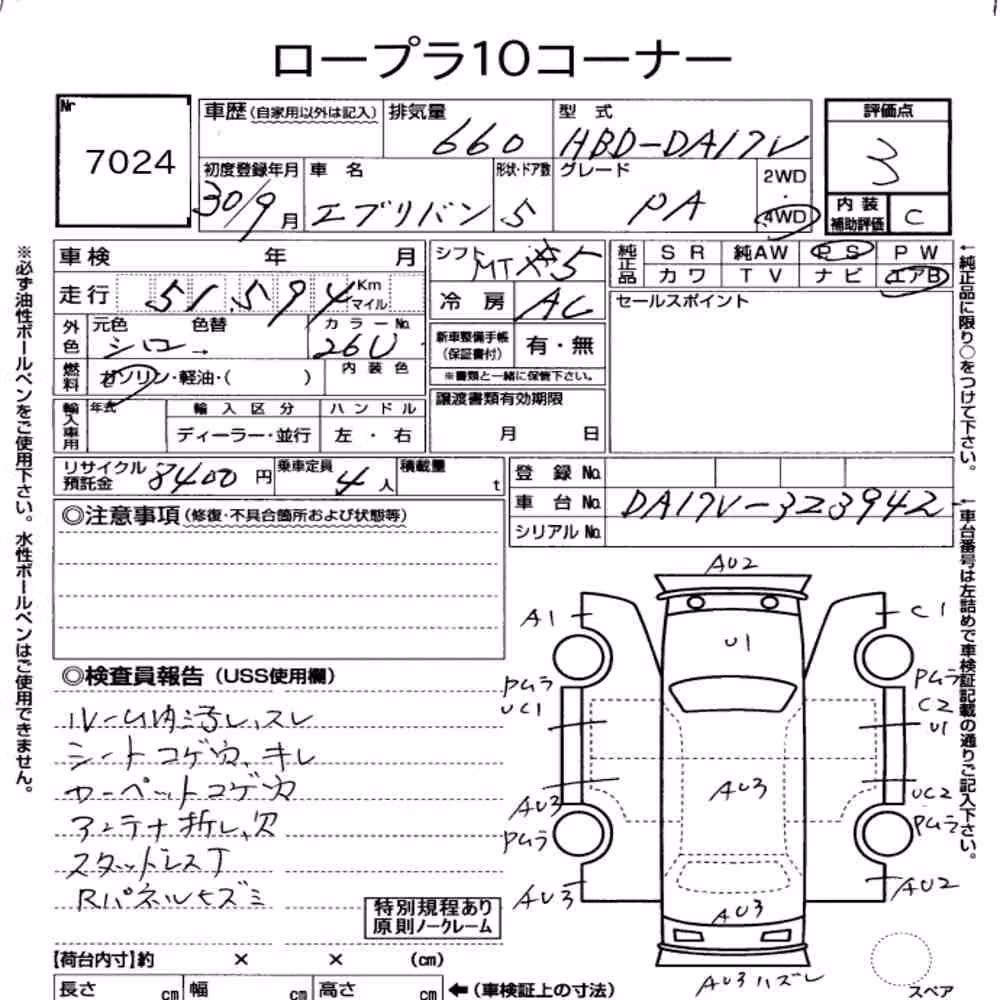 ロープラ10コーナー
Nr
7024
車歴 (自家用以外は記入)
排気量
660
型式
HBD-DA17V
評価点
3
内装
補助評価
C
初度登録年月
30/9月
車名
エブリバン
形状・ドア数
5
グレード
PA
2WD
4WD
車検 年 月
走行 51.594 Km
マイル
シフト MT 5
冷房 AC
純正品
SR 純AW PS PW
カワ TV ナビ エアB
セールスポイント
外色
元色 色替
シロ →
カラーNo.
26U
燃料
ガソリン・軽油・( )
内装色
新車整備手帳
(保証書付)
有・無
※書類と一緒に保管下さい。
輸入車用
年式
輸入区分
ディーラー・並行
ハンドル
左・右
譲渡書類有効期限
月 日
リサイクル
預託金
8400円
乗車定員
4人
積載量
t
登録No.
車台No. DA17V-323942
シリアルNo.
◎注意事項 (修復・不具合箇所および状態等)
◎検査員報告 (USS使用欄)
ルーム内汚レ、スレ
シートコゲ穴、キレ
カーペットコゲ穴
アンテナ折レ、欠
スタッドレスT
Rパネルキズミ
特別規程あり
原則ノークレーム
【荷台内寸】約 × × (cm)
長さ cm 幅 cm 高さ cm
←(車検証上の寸法)
AU2
A1
C1
U1
Pムラ
UC1
PムラC2
U1
AU3
AU3
UC2
Pムラ
Pムラ
AU3
AU3
AU2
AU3ハズレ
スペア
※必ず油性ボールペンをご使用下さい。水性ボールペンはご使用できません。
←純正品に限り○をつけて下さい。
←車台番号は左詰めで車検証記載の通りご記入下さい。